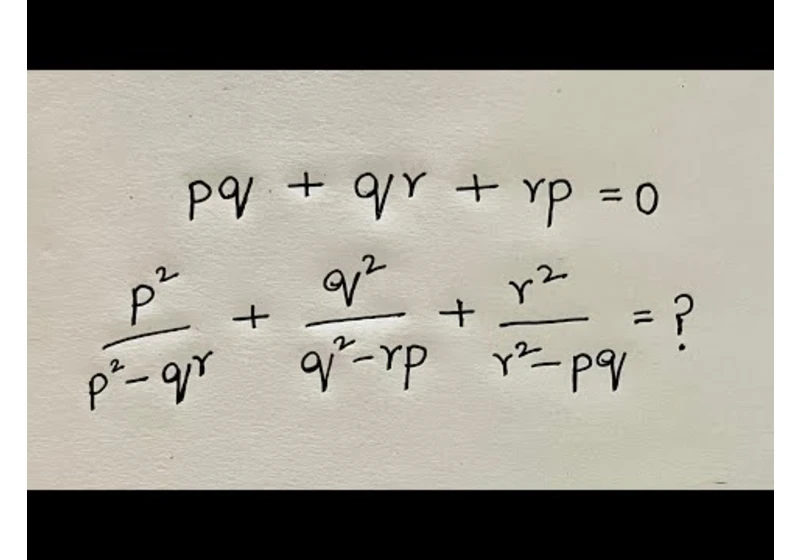 pq + qr + rp = 0
p²/(p²-qr) + q²/(q²-rp) + r²/(r²-pq) = ?